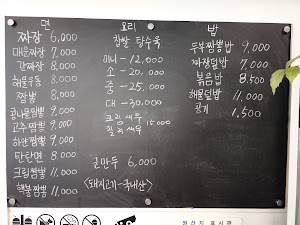 면
짜장 6,000
매운짜장 7,000
간짜장 8,000
해물우동 8,000
짬뽕 8,000
콩나물짬뽕 9,000
고추짬뽕 9,000
하얀짬뽕 9,000
탄탄면 8,000
크림짬뽕 11,000
해물짬뽕 11,000
요리
찹쌀 탕수육
미니-12,000
소-20,000
중-25,000
대-30,000
크림새우
칠리새우 15,000
군만두 6,000
<돼지고기-국내산>
밥
두부짬뽕밥 9,000
짜장덮밥 7,000
볶음밥 8,500
해물덮밥 11,000
공기 1,500
원산지 표시판